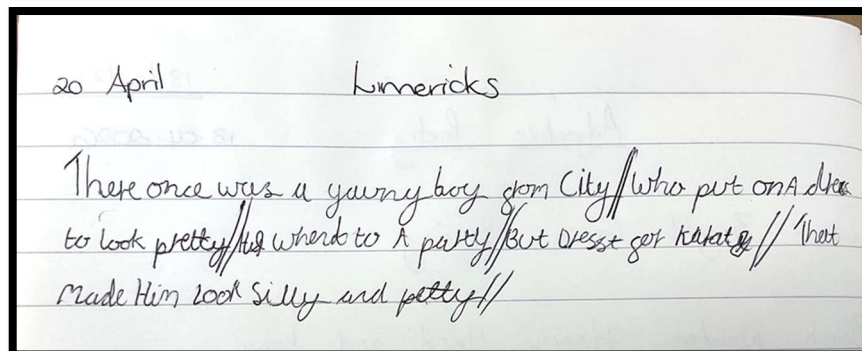 20 April Limericks
There once was a young boy from City//Who put on A dress
to look pretty//He whent to A party//But Dresst for Karate// That
Made Him Look Silly and petty//